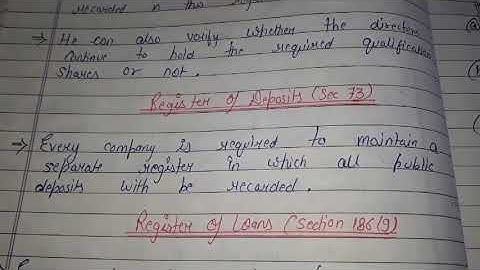 recorded in this
→ He can also verify whether the directors
continue to hold the required qualification
shares or not.
Register of Deposits (Sec 73)
→ Every company is required to maintain a
separate register in which all public
deposits with be recorded.
Register of Loans (Section 186(9)